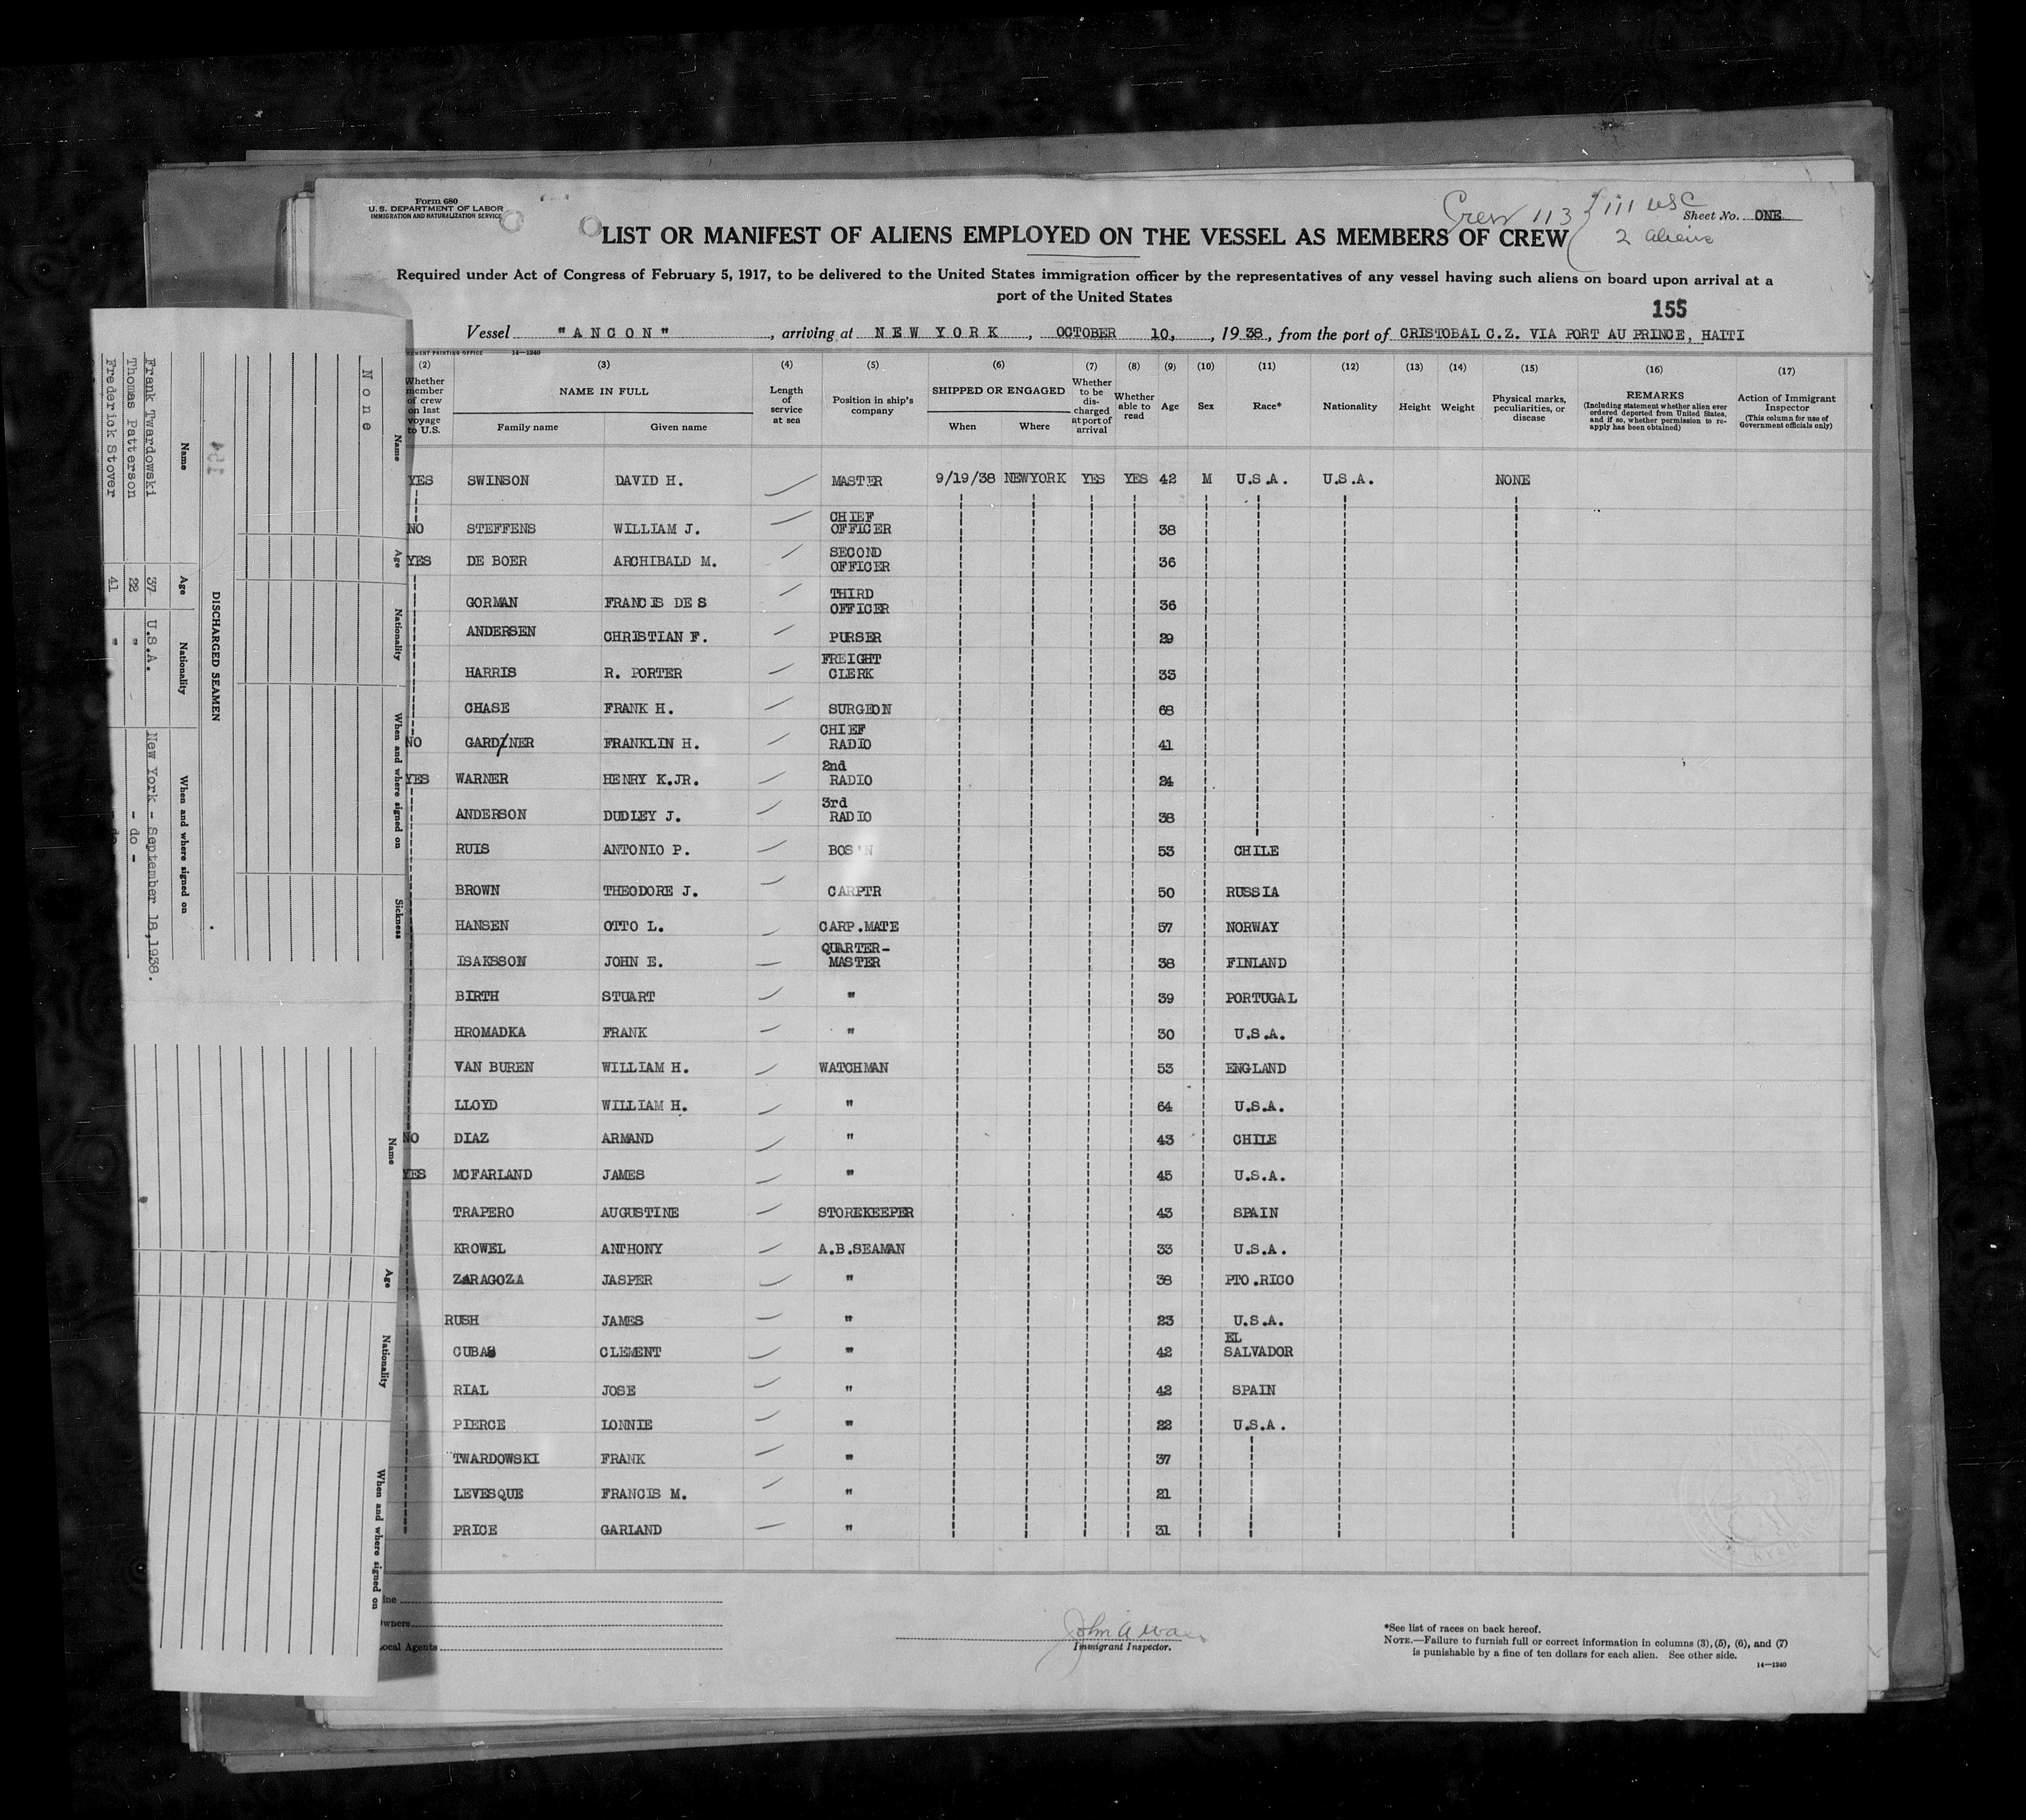 Form 680
U.S. DEPARTMENT OF LABOR
IMMIGRATION AND NATURALIZATION SERVICE
Crew 113 { 111 USC
2 aliens
Sheet No. ONE
LIST OR MANIFEST OF ALIENS EMPLOYED ON THE VESSEL AS MEMBERS OF CREW
Required under Act of Congress of February 5, 1917, to be delivered to the United States immigration officer by the representatives of any vessel having such aliens on board upon arrival at a
port of the United States
155
Vessel "ANCON", arriving at NEW YORK, OCTOBER 10, , 1938, from the port of CRISTOBAL C.Z. VIA PORT AU PRINCE, HAITI
14—1240
(2) Whether member of crew on last voyage to U.S.
(3) NAME IN FULL Family name Given name
(4) Length of service at sea
(5) Position in ship's company
(6) SHIPPED OR ENGAGED When Where
(7) Whether to be discharged at port of arrival
(8) Whether able to read
(9) Age
(10) Sex
(11) Race*
(12) Nationality
(13) Height
(14) Weight
(15) Physical marks, peculiarities, or disease
(16) REMARKS (Including statement whether alien ever ordered deported from United States, and if so, whether permission to re-apply has been obtained)
(17) Action of Immigrant Inspector (This column for use of Government officials only)
YES SWINSON DAVID H. MASTER 9/19/38 NEWYORK YES YES 42 M U.S.A. U.S.A. NONE
NO STEFFENS WILLIAM J. CHIEF OFFICER 38
YES DE BOER ARCHIBALD M. SECOND OFFICER 36
GORMAN FRANCIS DE S THIRD OFFICER 36
ANDERSEN CHRISTIAN F. PURSER 29
HARRIS R. PORTER FREIGHT CLERK 33
CHASE FRANK H. SURGEON 68
NO GARDINER FRANKLIN H. CHIEF RADIO 41
YES WARNER HENRY K.JR. 2nd RADIO 24
ANDERSON DUDLEY J. 3rd RADIO 38
RUIS ANTONIO P. BOS'N 53 CHILE
BROWN THEODORE J. CARPTR 50 RUSSIA
HANSEN OTTO L. CARP.MATE 57 NORWAY
ISAKSSON JOHN E. QUARTER-MASTER 38 FINLAND
BIRTH STUART " 39 PORTUGAL
HROMADKA FRANK " 30 U.S.A.
VAN BUREN WILLIAM H. WATCHMAN 53 ENGLAND
LLOYD WILLIAM H. " 64 U.S.A.
NO DIAZ ARMAND " 43 CHILE
YES MCFARLAND JAMES " 45 U.S.A.
TRAPERO AUGUSTINE STOREKEEPER 43 SPAIN
KROWEL ANTHONY A.B.SEAMAN 33 U.S.A.
ZARAGOZA JASPER " 38 PTO.RICO
RUSH JAMES " 23 U.S.A.
CUBAS CLEMENT " 42 EL SALVADOR
RIAL JOSE " 42 SPAIN
PIERCE LONNIE " 22 U.S.A.
TWARDOWSKI FRANK " 37
LEVESQUE FRANCIS M. " 21
PRICE GARLAND " 31
Owners
Local Agents
Immigrant Inspector.
*See list of races on back hereof.
NOTE.—Failure to furnish full or correct information in columns (3), (5), (6), and (7)
is punishable by a fine of ten dollars for each alien. See other side.
14—1240
Name Age Nationality When and where signed on Sickness
None
DISCHARGED SEAMEN
Name Age Nationality When and where signed on
Frank Twardowski 37 U.S.A. New York - September 18,1938.
Thomas Patterson 22 " - do -
Frederick Stover 41 " - do
Name Age Nationality When and where signed on